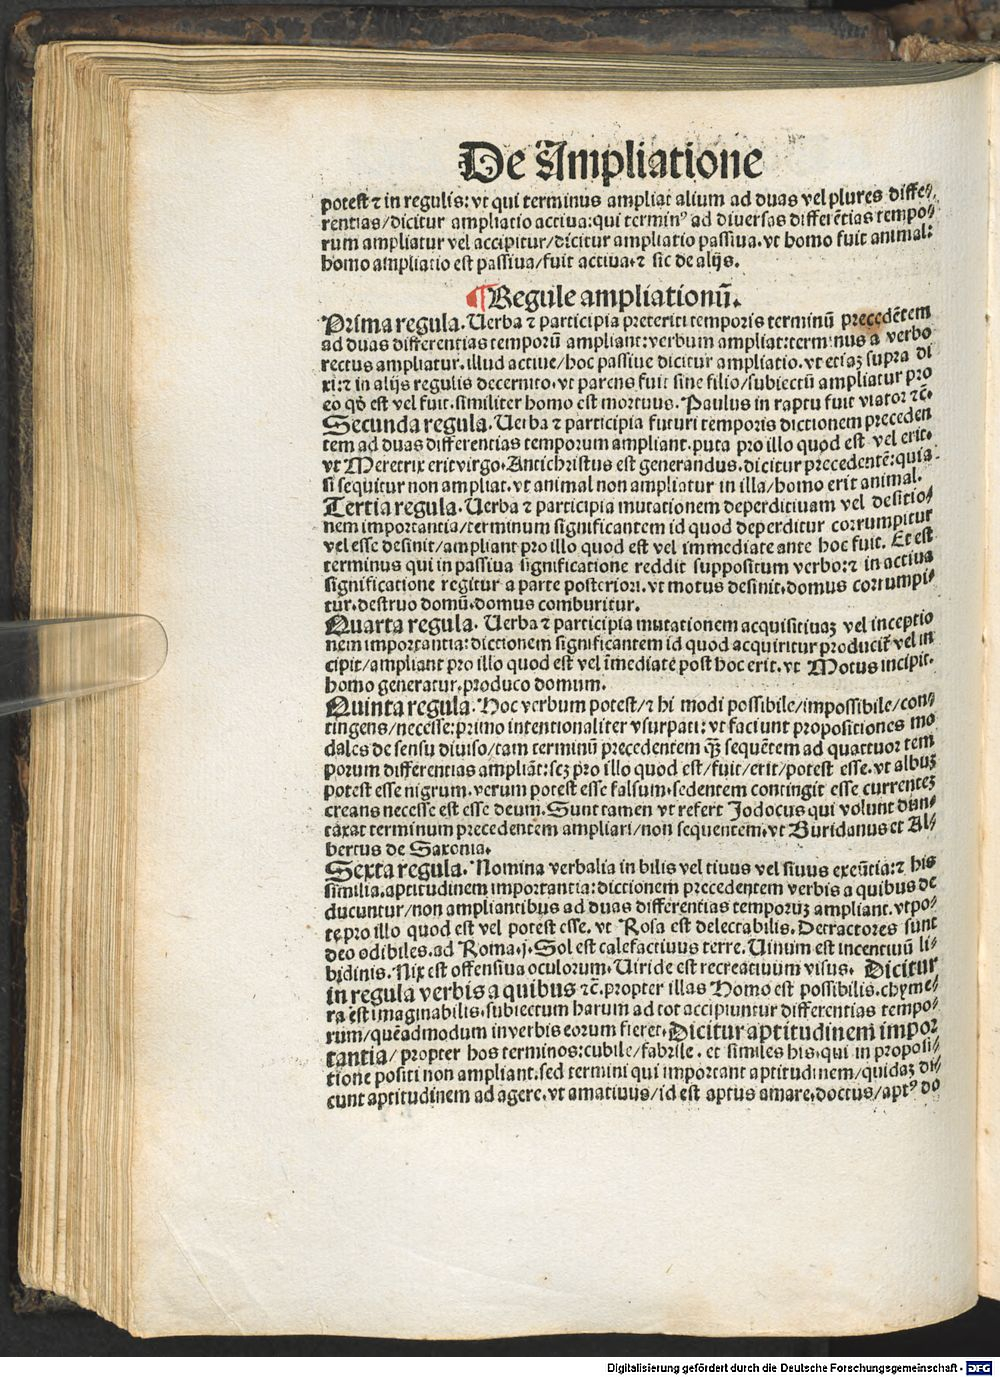 De Ampliatione
potest ⁊ in regulis: vt qui terminus ampliat alium ad duas vel plures diffe⸗
rentias/dicitur ampliatio actiua: qui terminꝰ ad diuersas differẽtias tempo⸗
rum ampliatur vel accipitur/dicitur ampliatio passiua. vt homo fuit animal:
homo ampliatio est passiua/fuit actiua. ⁊ sic de alijs.
¶ Regule ampliationũ.
Prima regula. Uerba ⁊ participia preteriti temporis terminũ precedẽtem
ad duas differentias temporũ ampliant: verbum ampliat: terminus a verbo
rectus ampliatur. illud actiue/hoc passiue dicitur ampliatio. vt etiaꝫ supra di
xi: ⁊ in alijs regulis decernito. vt parens fuit sine filio/subiectũ ampliatur pro
eo qđ est vel fuit. similiter homo est mortuus. Paulus in raptu fuit viator ⁊c̃.
Secunda regula. Uerba ⁊ participia futuri temporis dictionem preceden
tem ad duas differentias temporum ampliant. puta pro illo quod est vel erit.
vt Meretrix erit virgo. Antichristus est generandus. dicitur precedentẽ: quia
si sequitur non ampliat. vt animal non ampliatur in illa/homo erit animal.
Tertia regula. Uerba ⁊ participia mutationem deperditiuam vel desitio⸗
nem importantia/terminum significantem id quod deperditur corrumpitur
vel esse desinit/ampliant pro illo quod est vel immediate ante hoc fuit. Et est
terminus qui in passiua significatione reddit suppositum verbo: ⁊ in actiua
significatione regitur a parte posteriori. vt motus desinit. domus corrumpi⸗
tur. destruo domũ. domus comburitur.
Quarta regula. Uerba ⁊ participia mutationem acquisitiuaꝫ vel inceptio
nem importantia: dictionem significantem id quod acquiritur producit̃ vel in
cipit/ampliant pro illo quod est vel ĩmediate post hoc erit. vt Motus incipit.
homo generatur. produco domum.
Quinta regula. Hoc verbum potest/⁊ hi modi possibile/impossibile/con⸗
tingens/necesse: primo intentionaliter vsurpati: vt faciunt propositiones mo
dales de sensu diuiso/tam terminũ precedentem q̃ꝫ sequẽtem ad quattuor tem
porum differentias ampliãt: scꝫ pro illo quod est/fuit/erit/potest esse. vt albuꝫ
potest esse nigrum. verum potest esse falsum. sedentem contingit esse currenteꝫ
creans necesse est esse deum. Sunt tamen vt refert Jodocus qui volunt dun⸗
taxat terminum precedentem ampliari/non sequentem. vt Buridanus et Al⸗
bertus de Saxonia.
Sexta regula. Nomina verbalia in bilis vel tiuus vel siuus exeũtia: ⁊ his
similia. aptitudinem importantia: dictionem precedentem verbis a quibus de
ducuntur/non ampliantibus ad duas differentias temporuꝫ ampliant. vtpo⸗
te pro illo quod est vel potest esse. vt Rosa est delectabilis. Detractores sunt
deo odibiles. ad Roma. j. Sol est calefactiuus terre. Uinum est incentiuũ li⸗
bidinis. Nix est offensiua oculorum. Uiride est recreatiuum visus. Dicitur
in regula verbis a quibus ⁊c̃. propter illas Homo est possibilis. chyme⸗
ra est imaginabilis. subiectum harum ad tot accipiuntur differentias tempo⸗
rum/quẽadmodum in verbis eorum fieret. Dicitur aptitudinem impor
tantia/ propter hos terminos: cubile/fabrile. et similes his. qui in proposi⸗
tione positi non ampliant. sed termini qui important aptitudinem/quidaꝫ di⸗
cunt aptitudinem ad agere. vt amatiuus/id est aptus amare. doctus/aptꝰ do
Digitalisierung gefördert durch die Deutsche Forschungsgemeinschaft - DFG